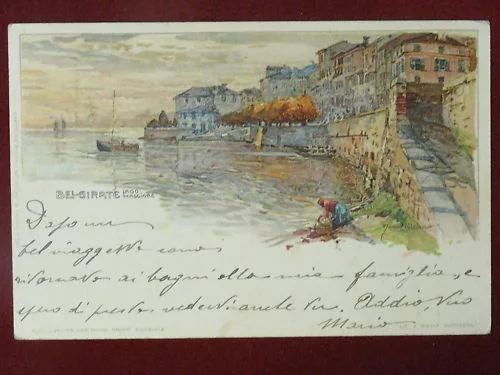 BELGIRATE LAGO MAGGIORE
Dopo un
bel viaggetto sono
ritornato ai bagni alla mia famiglia, e
spero di presto vedervi anche Voi. Addio, tuo
Mario